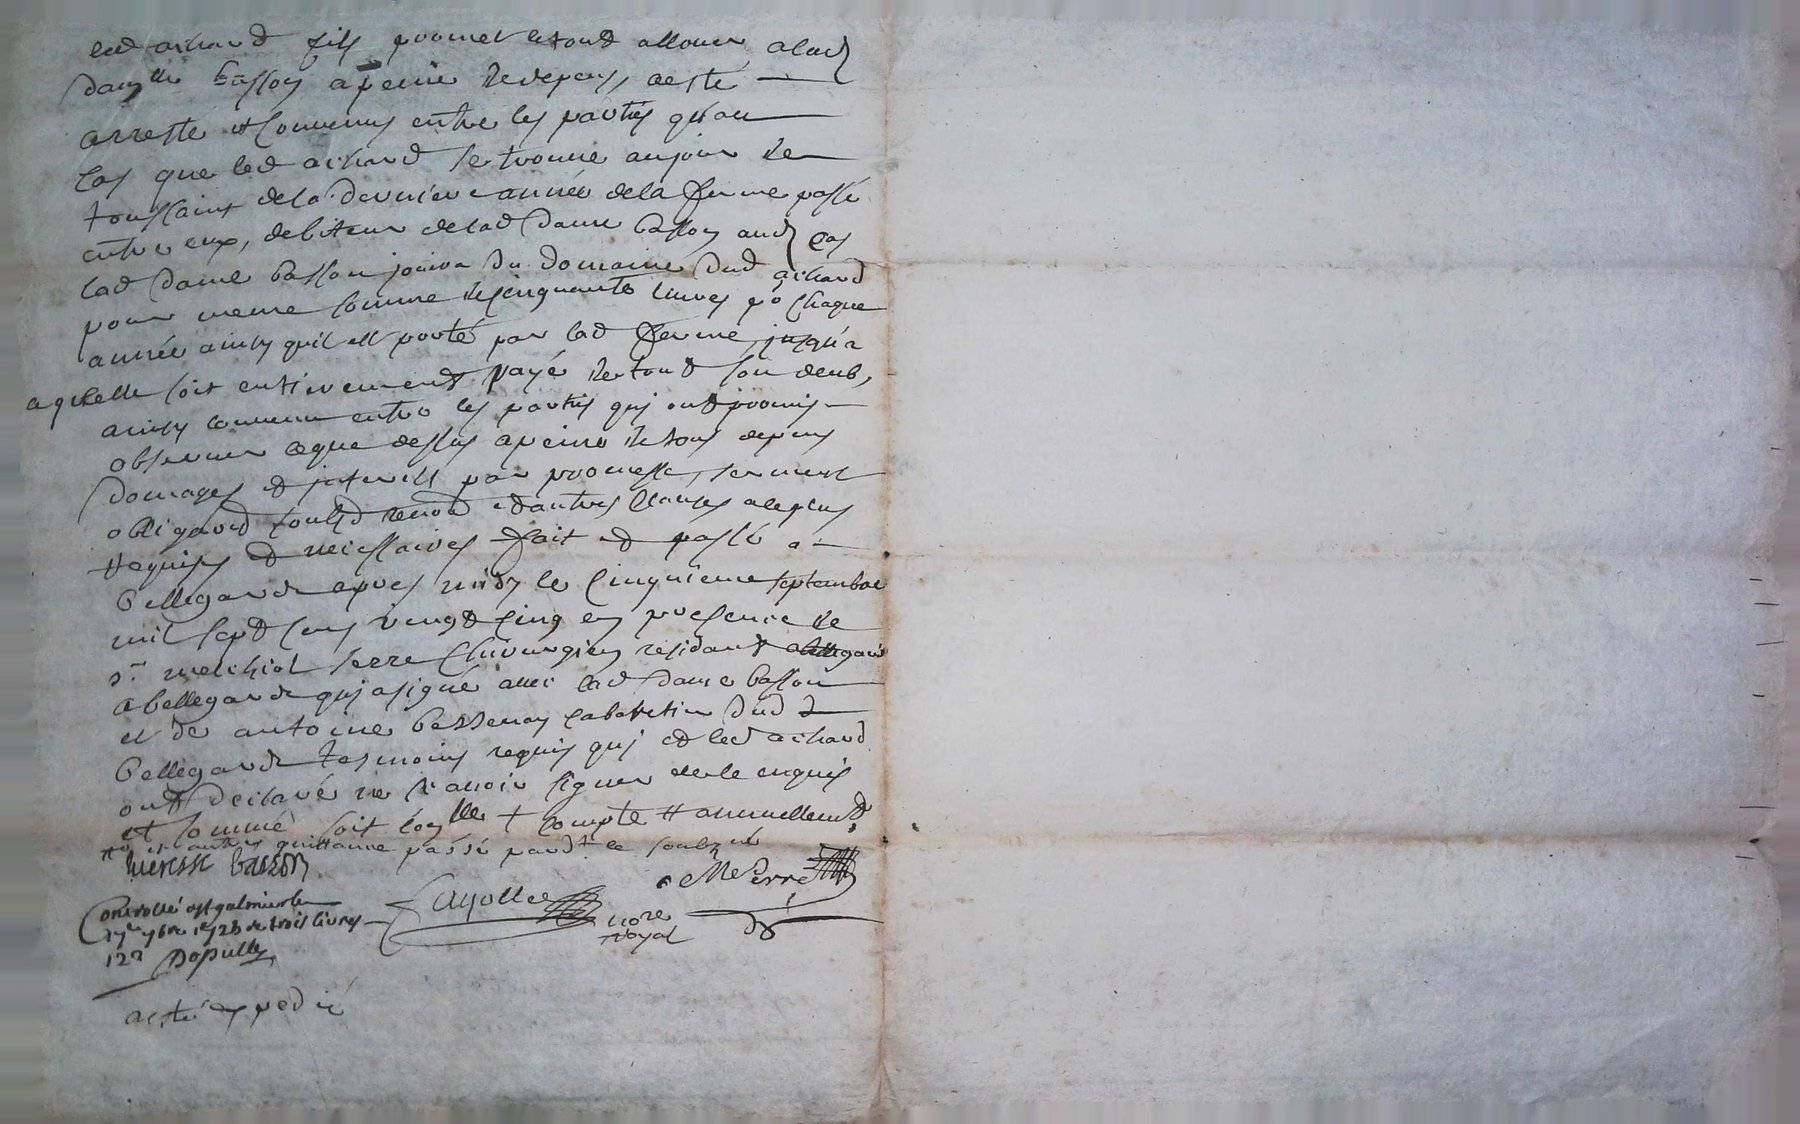 led achard fils promet le tout allouer alad
damlle basson a peine de depens, a esté
arresté et convenus entre les parties qu'au
cas que led achard se trouve au jour de
toussaint de la derniere année de la ferme passé
entre eux, debiteur de lad dame basson aud cas
lad dame basson jouira du domaine dud achard
pour meme somme de cinquante livres po chaque
année ainsy qu'il est porté par lad ferme, jusqu'a
a qu'elle soit entierement payé de tout son deub,
ainsy convenu entre les parties qui ont promis
observer ce que dessus a peine de tous depens
domages et interists par promesse, serment
obligaond soubzd renond et autres clauses a ce plus
requises et neccessaires fait et passé a
bellegarde apres midy le cinquieme septembre
mil sept cens vingt cinq en presence de
sr. melchiol serre chirurgien residant a bellegard
a bellegarde qui a signé avec lad dame basson
et de antoine cabaretier dud
bellegarde tesmoins requis qui et led achard
ont declaré ne scavoir signer de ce enquis
et sommé soit conlle + compte # annuellement
et autres quittance passé pardt le soubzné
basson
MSerre
Cayolle
nore
royal
Controllé a st galmier le
17e 7bre 1725 de trois livres
Dopully
acte expedié